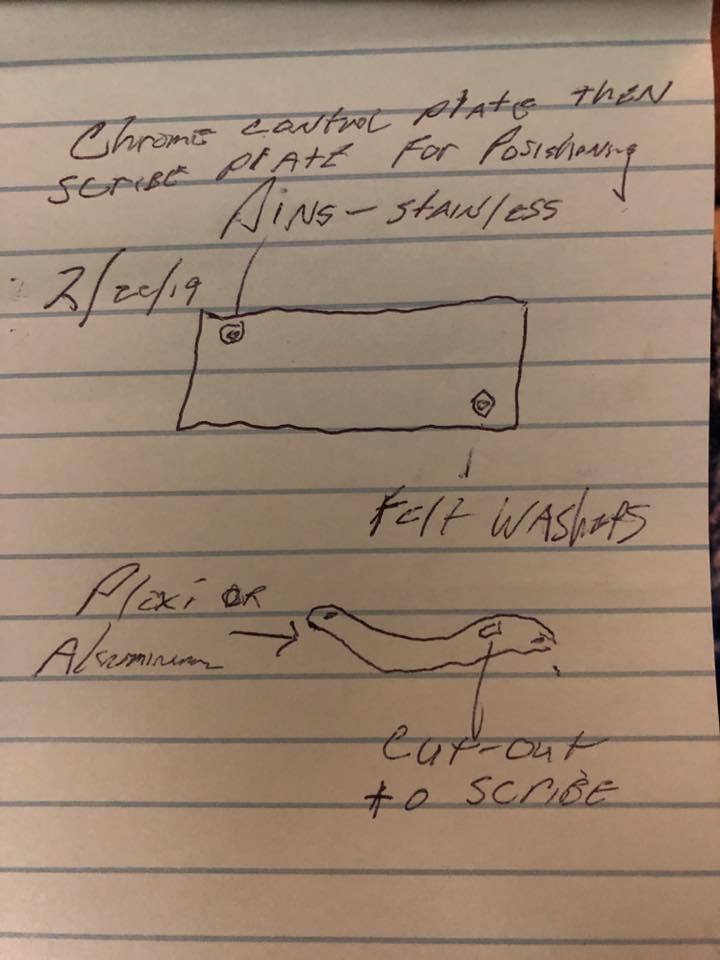 Chrome control plate then
scribe plate for Posishoning
Pins - stainless
2/20/19
Felt washers
Plexi or
Aluminum
Cut-out
to scribe